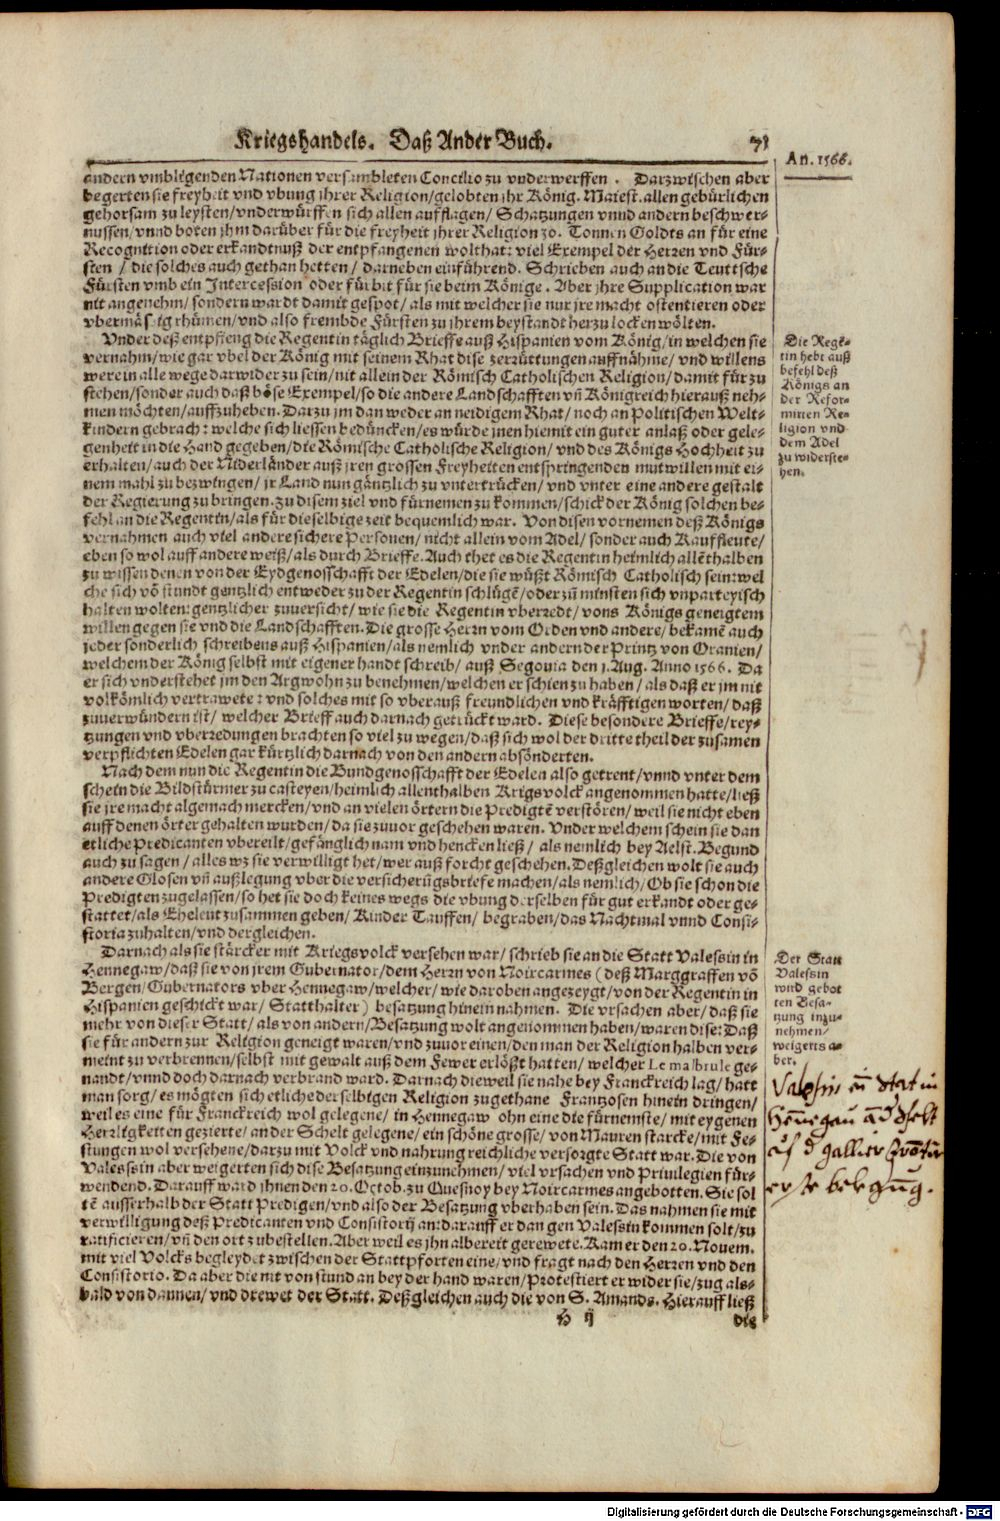 Kriegshandels. Daß Ander Buch. 71
An. 1566.
andern vmbligenden Nationen versambleten Concilio zu vnderwerffen. Darzwischen aber
begerten sie freyheit vnd vbung jhrer Religion/gelobten jhr König. Maiest. allen gebürlichen
gehorsam zu leysten/vnderwürffen sich allen aufflagen/ Schatzungen vnnd andern beschwer-
nussen/vnnd boten jhm darüber für die freyheit jhrer Religion 30. Tonnen Goldts an für eine
Recognition oder erkandtnuß der entpfangenen wolthat: viel Exempel der Herren vnd Für-
sten / die solches auch gethan hetten / darneben einführend. Schrieben auch an die Teuttsche
Fürsten vmb ein Intercession oder fürbit für sie beim Könige. Aber jhre Supplication war
nit angenehm/sondern wardt damit gespot/als mit welcher sie nur jre macht ostentieren oder
vbermässig rhümen/vnd also frembde Fürsten zu jhrem beystandt herzu locken wölten.
Vnder deß entpfieng die Regentin täglich Brieffe auß Hispanien vom König/in welchen sie
vernahm/wie gar vbel der König mit seinem Rhat dise zerrüttungen auffnähme/ vnd willens
were in alle wege darwider zu sein/nit allein der Römisch Catholischen Religion/damit für zu
stehen/sonder auch daß böse Exempel/so die andere Landschafften vñ Königreich hierauß neh-
men möchten/auffzuheben. Darzu jm dan weder an neidigem Rhat/noch an Politischen Welt-
kindern gebrach: welche sich liessen bedüncken/es würde jnen hiemit ein guter anlaß oder gele-
genheit in die Hand gegeben/die Römische Catholische Religion/ vnd des Königs Hochheit zu
erhalten/auch der Niderländer auß jren grossen Freyheiten entspringenden mutwillen mit ei-
nem mahl zu bezwingen/ jr Land nun gäntzlich zu vntertrücken/ vnd vnter eine andere gestalt
der Regierung zu bringen. Zu disem ziel vnd fürnemen zu kommen/schickt der König solchen be-
fehl an die Regentin/als für dieselbige zeit bequemlich war. Von disen vornemen deß Königs
vernahmen auch viel andere sichere Personen/ nicht allein vom Adel/ sonder auch Kauffleute/
eben so wol auff andere weiß/als durch Brieffe. Auch thet es die Regentin heimlich allēthalben
zu wissen denen von der Eydgenosschafft der Edelen/die sie wüßt Römisch Catholisch sein: wel
che sich vō stundt gentzlich entweder zu der Regentin schlügē/oder zū minsten sich vnparteyisch
halten wolten: gentzlicher zuuersicht/ wie sie die Regentin vberredt/ vons Königs geneigtem
willen gegen sie vnd die Landschafften. Die grosse Herrn vom Orden vnd andere/ bekamē auch
jeder sonderlich schreibens auß Hispanien/als nemlich vnder andern der Printz von Oranien/
welchem der König selbst mit eigener handt schreib/ auß Segouia den 1. Aug. Anno 1566. Da
er sich vnderstehet jm den Argwohn zu benehmen/welchen er schien zu haben/ als daß er jm nit
volkömlich vertrawete: vnd solches mit so vberauß freundlichen vnd kräfftigen worten/ daß
zuuerwündern ist/ welcher Brieff auch darnach getrückt ward. Diese besondere Brieffe/rey-
tzungen vnd vberredungen brachten so viel zu wegen/daß sich wol der dritte theil der zusamen
verpflichten Edelen gar kürtzlich darnach von den andern absönderten.
Nach dem nun die Regentin die Bundgenosschafft der Edelen also getrent/vnnd vnter dem
schein die Bildstürmer zu casteyen/heimlich allenthalben Krigsvolck angenommen hatte/ließ
sie jre macht algemach mercken/vnd an vielen örtern die Predigtē verstören/ weil sie nicht eben
auff denen örter gehalten wurden/da sie zuuor geschehen waren. Vnder welchem schein sie dan
etliche Predicanten vbereilt/gefänglich nam vnd hencken ließ/ als nemlich bey Aelst. Begund
auch zu sagen/alles wz sie verwilligt het/wer auß forcht geschehen. Deßgleichen wolt sie auch
andere Glosen vñ außlegung vber die versicherūgsbriefe machen/als nemlich/Ob sie schon die
Predigten zugelassen/so het sie doch keines wegs die vbung derselben für gut erkandt oder ge-
stattet/als Eheleut zusammen geben/ Kinder Tauffen/ begraben/das Nachtmal vnnd Consi-
storia zuhalten/vnd dergleichen.
Darnach als sie stärcker mit Kriegsvolck versehen war/ schrieb sie an die Statt Valessin in
Hennegaw/daß sie von jrem Gubernator/dem Herrn von Noircarmes (deß Marggraffen vō
Bergen/Gubernators vber Hennegaw/welcher/ wie daroben angezeygt/von der Regentin in
Hispanien geschickt war/ Statthalter) besatzung hinein nahmen. Die vrsachen aber/daß sie
mehr von dieser Statt/ als von andern/Besatzung wolt angenommen haben/waren dise: Daß
sie für andern zur Religion geneigt waren/vnd zuuor einen/den man der Religion halben ver-
meint zu verbrennen/selbst mit gewalt auß dem Fewer erlößt hatten/ welcher Le malbrule ge-
nandt/vnnd doch darnach verbrand ward. Darnach dieweil sie nahe bey Franckreich lag/hatt
man sorg/es mögten sich etliche derselbigen Religion zugethane Frantzosen hinein dringen/
weil es eine für Franckreich wol gelegene/ in Hennegaw ohn eine die fürnemste/ mit eygenen
Herrligkeiten gezierte/ an der Schelt gelegene/ein schöne grosse/ von Mauren starcke/mit Fe-
stungen wol versehene/darzu mit Volck vnd nahrung reichliche versorgte Statt war. Die von
Valessin aber weigerten sich dise Besatzung einzunehmen/ viel vrsachen vnd Priuilegien für-
wendend. Darauff ward jhnen den 20. Octob. zu Quesnoy bey Noircarmes angebotten. Sie sol
tē ausserhalb der Statt Predigen/vnd also der Besatzung vberhaben sein. Das nahmen sie mit
verwilligung deß Predicanten vnd Consistorij an: darauff er dan gen Valessin kommen solt/zu
ratificieren/vñ den ort zubestellen. Aber weil es jhn albereit gerewete. Kam er den 20. Nouem.
mit viel Volcks begleydet zwischen der Stattpforten eine/vnd fragt nach den Herren vnd den
Consistorio. Da aber die nit von stund an bey der hand waren/Protestiert er wider sie/zug als-
bald von dannen/ vnd drewet der Statt. Deßgleichen auch die von S. Amands. Hierauff ließ
H ij
die
Die Rege-
tin hebt auß
befehl deß
Königs an
der Refor-
mirten Re-
ligion vnd
dem Adel
zu widerste-
hen.
Der Statt
Valessin
wird gebot
ten Besa-
tzung inzu-
nehmen/
weigerts a-
ber.
in
Hennegau
Digitalisierung gefördert durch die Deutsche Forschungsgemeinschaft - DFG